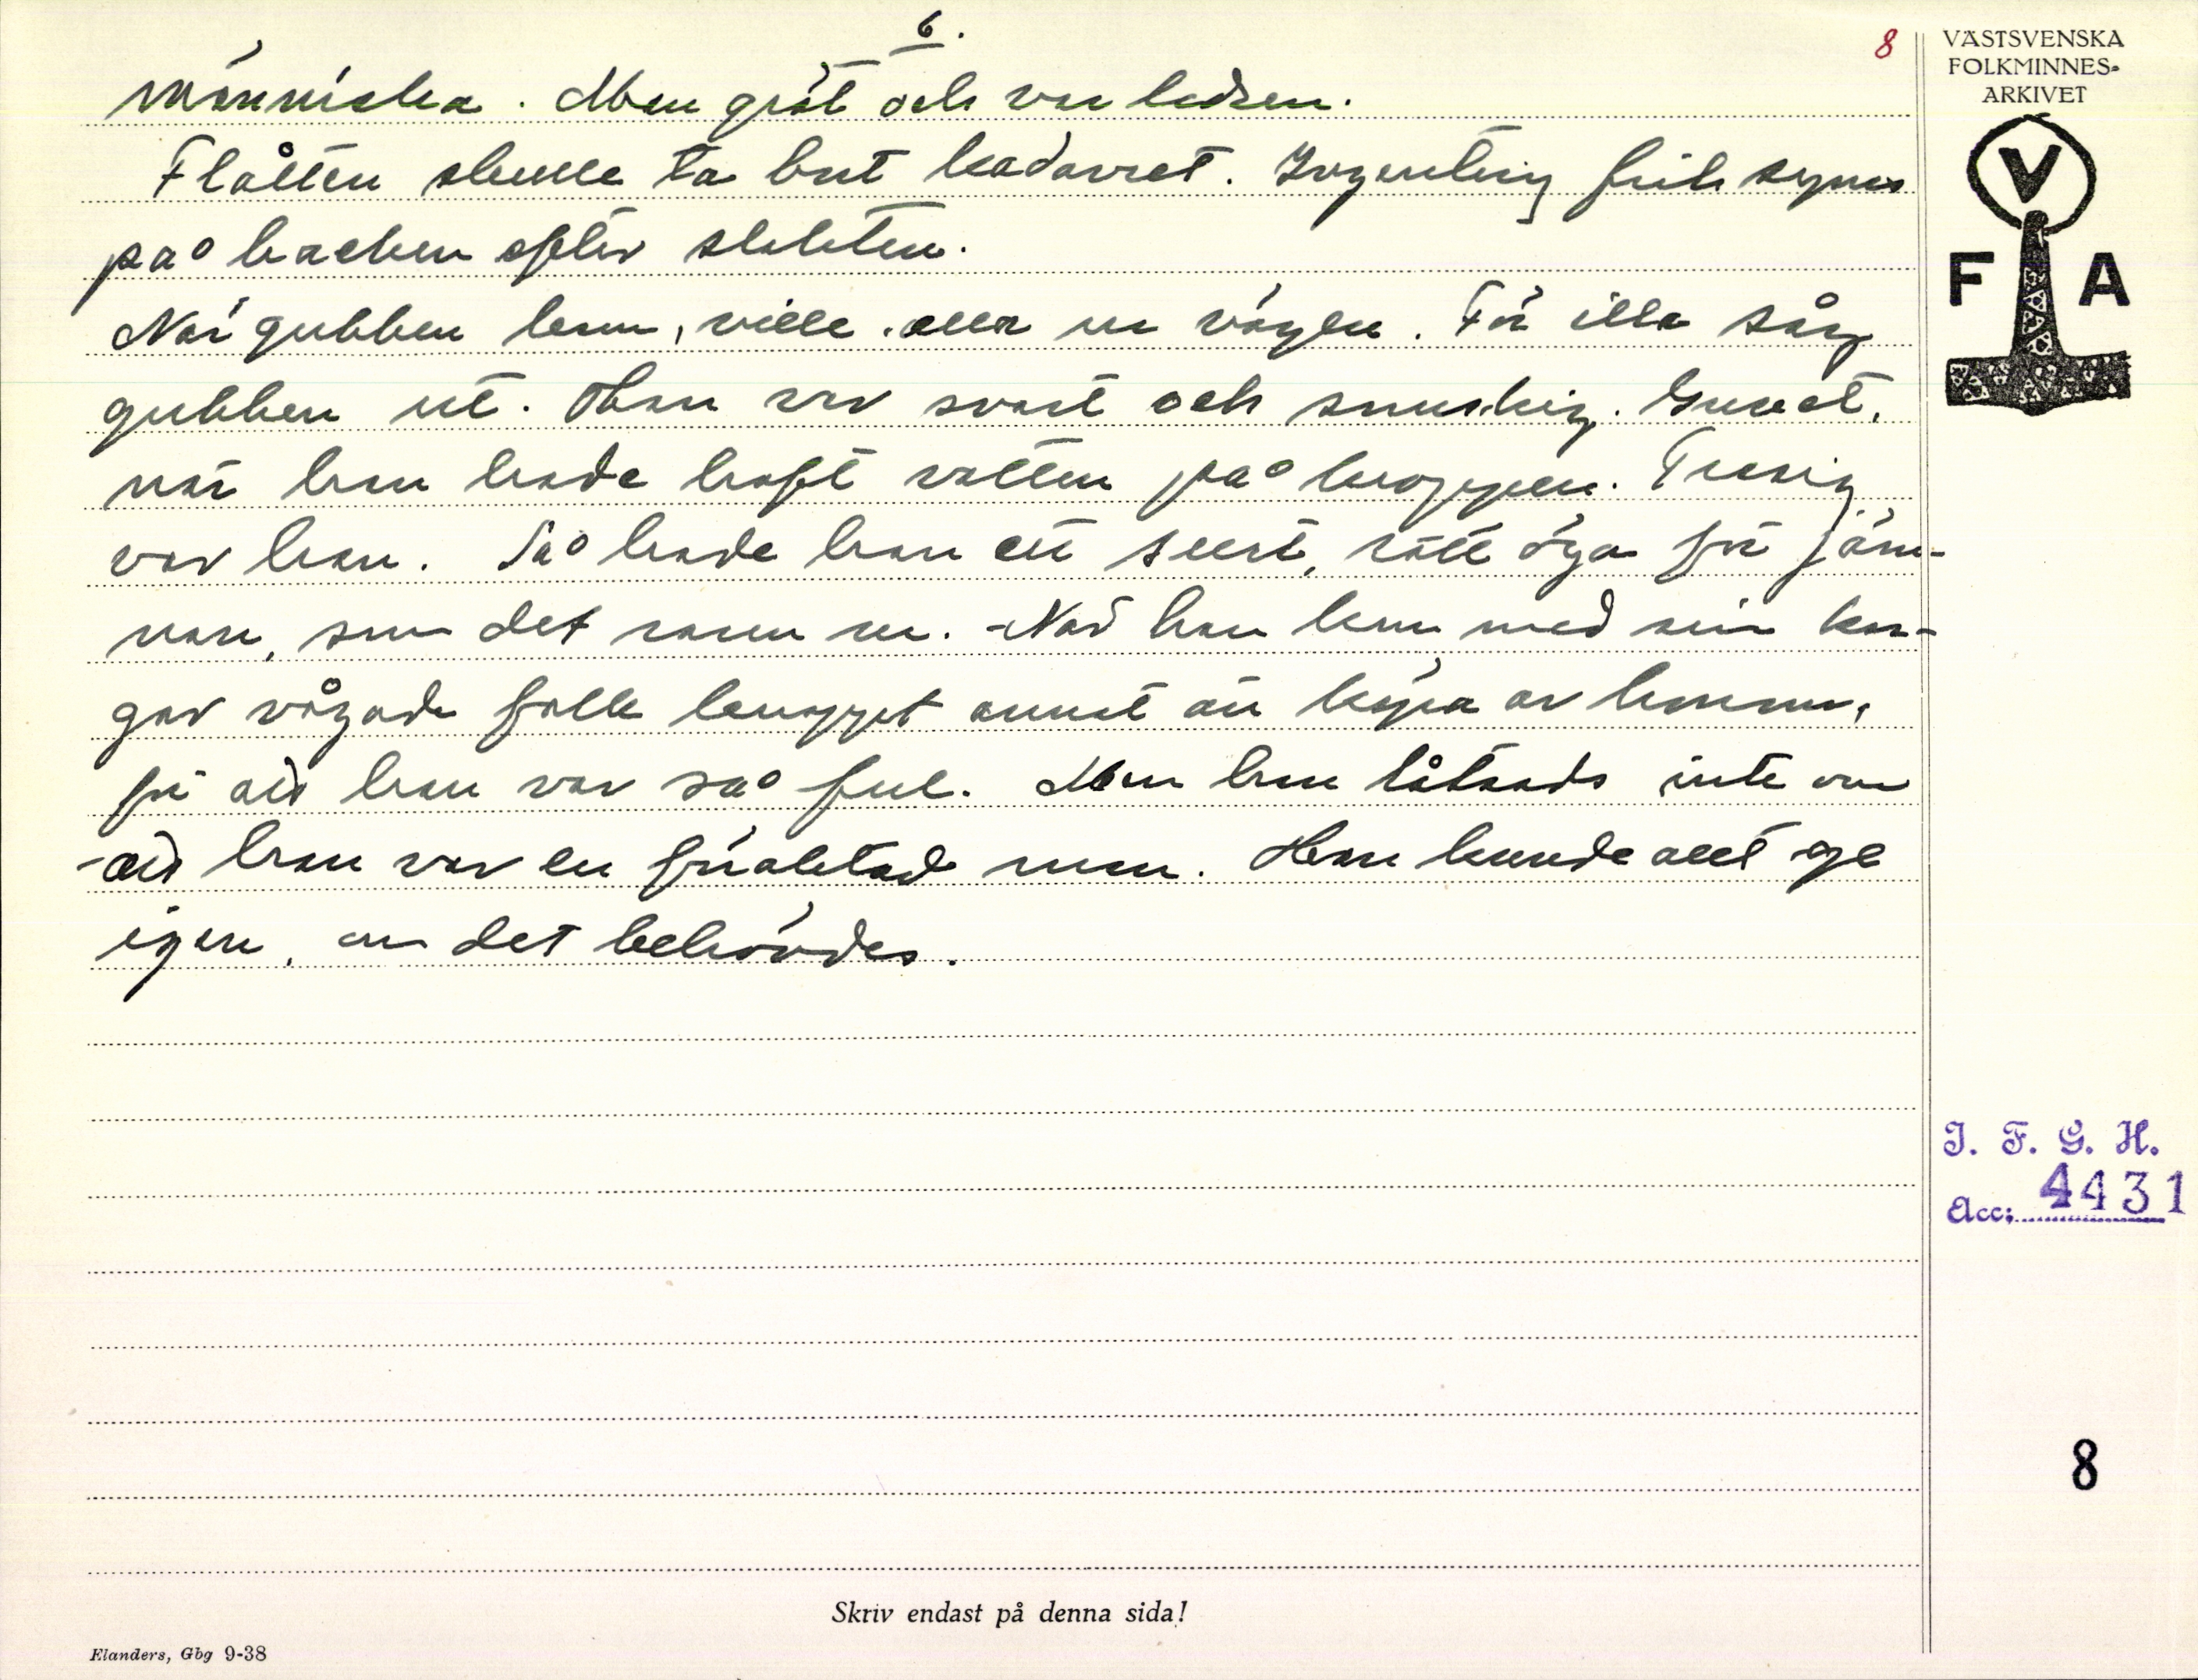 6.
8
människa. Man grät och var ledsen.
Flåtten skulle ta bort kadavret. Ingenting fick synas
på backen efter slakten.
När gubben kom, ville alla ur vägen. För illa såg
gubben ut. Han var svart och snuskig. Gud vet,
när han hade haft vatten på kroppen. Trasig
var han. Så hade han ett stort, rött öga för jäm-
nan, som det rann ur. När han kom med sin
gav vågade folk knappt annat än köpa av honom,
för att han var så ful. Men han låtsads inte om
att han var en föraktad man. Han kunde allt ge
igen, om det behövdes.
VÄSTSVENSKA
FOLKMINNES-
ARKIVET
V
F A
I. F. G. H.
Acc: 4431
8
Skriv endast på denna sida!
Elanders, Gbg 9-38